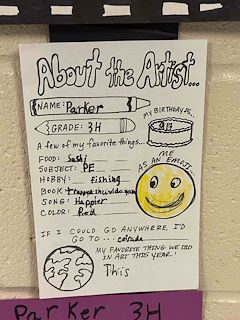 About the Artist...
NAME: Parker
MY BIRTHDAY IS...
GRADE: 3H
A few of my favorite things...
ME
AS AN EMOJI...
FOOD: Sushi
SUBJECT: PE
HOBBY: fishing
BOOK: trapped in a video game
SONG: Happier
COLOR: Red
IF I COULD GO ANYWHERE, I'D
GO TO...
MY FAVORITE THING WE DID
IN ART THIS YEAR!
This
Parker 3H